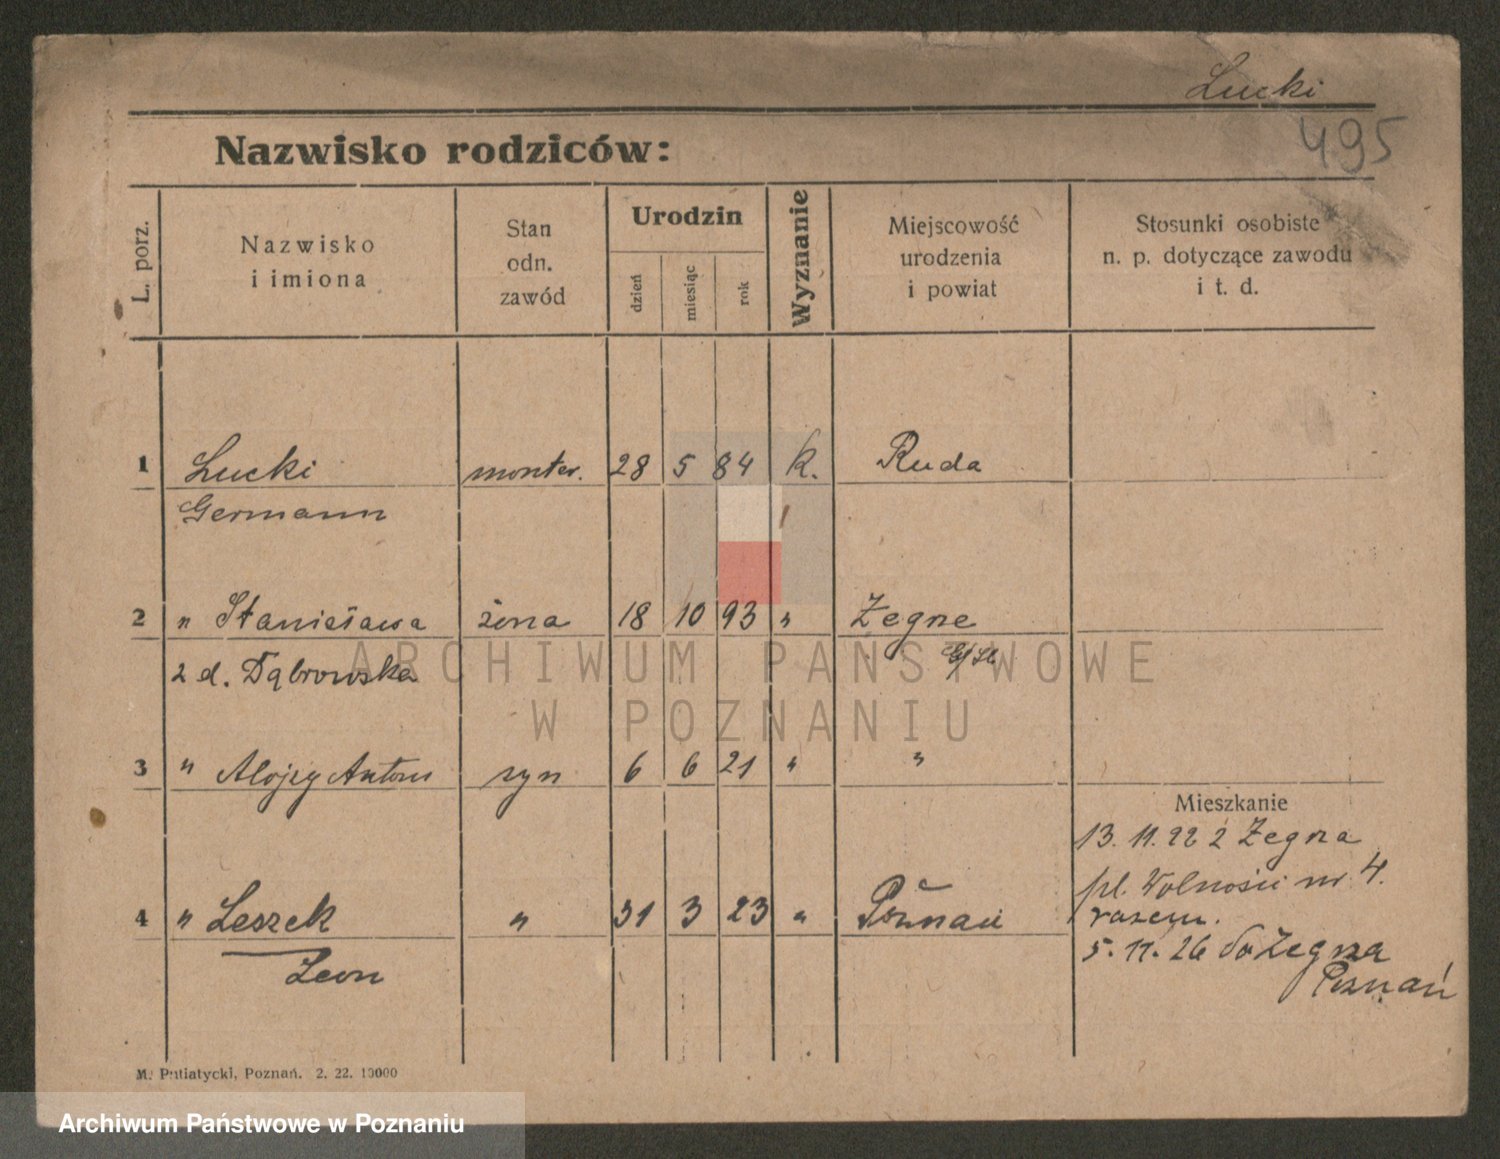 Lucki
495
Nazwisko rodziców:
L. porz.
Nazwisko
i imiona
Stan
odn.
zawód
Urodzin
dzień
miesiąc
rok
Wyznanie
Miejscowość
urodzenia
i powiat
Stosunki osobiste
n. p. dotyczące zawodu
i t. d.
1 Lucki monter. 28 5 84 k. Ruda
Germann
2 " Stanisława żona 18 10 93 " Żegne
z d. Dąbrowska G/Śl.
3 " Alojzy Antoni syn 6 6 21 " "
Mieszkanie
13. 11. 22 z Żegna
pl. Wolności nr 4.
razem.
4 " Leszek " 31 3 23 " Poznań
5. 11. 26 do Żegna
Leon
Poznań
M. Putiatycki, Poznań. 2. 22. 10000
ARCHIWUM PAŃSTWOWE
W POZNANIU
Archiwum Państwowe w Poznaniu